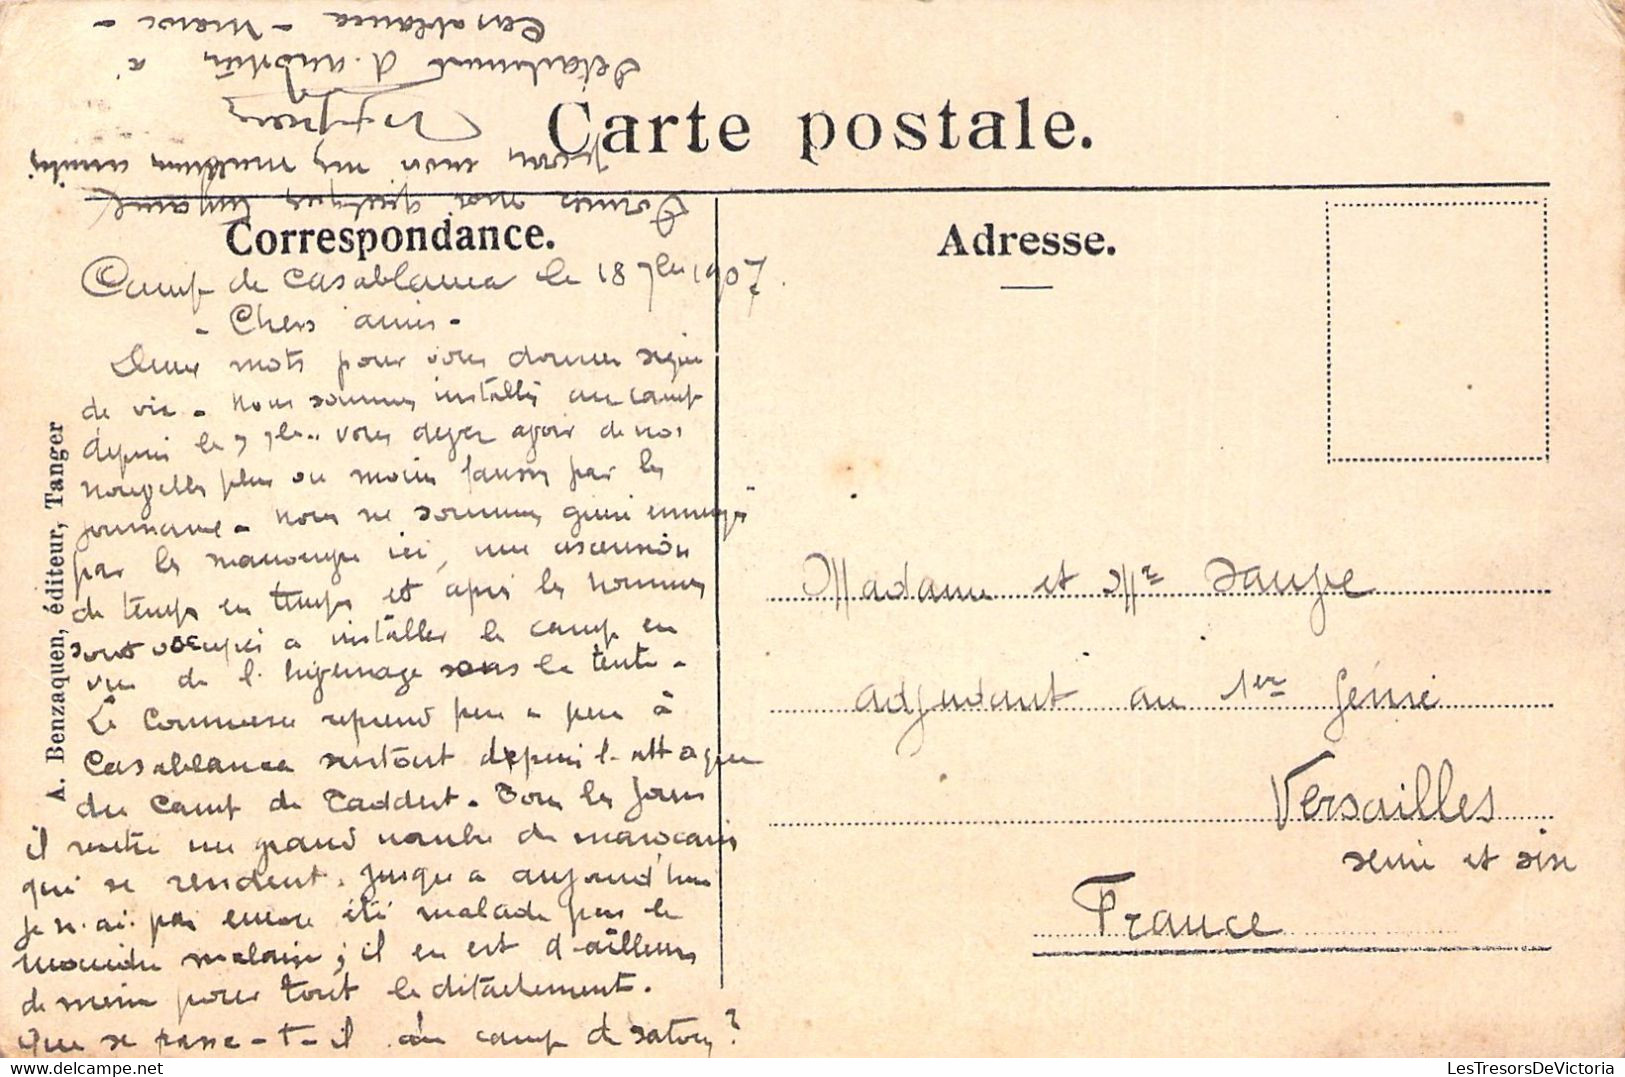 Carte postale.
Correspondance.
Adresse.
A. Benzaquen, éditeur, Tanger
Camp de Casablanca le 18 7bre 1907.
- Chers amis -
Deux mots pour vous donner signe
de vie - Nous sommes installés au camp
depuis le 7 7bre. Vous devez avoir de nos
nouvelles plus ou moins fausses par les
journaux - Nous ne sommes guère ennuyés
par les marocains ici, une ascension
de temps en temps et après les hommes
sont occupés a installer le camp en
vue de l'hivernage sous la tente -
Le Commerce reprend peu a peu à
Casablanca surtout depuis l'attaque
du Camp de Taddert. Tous les jours
il rentre un grand nombre de marocains
qui se rendent. Jusqu'a aujourd'hui
je n'ai pas encore été malade pas le
moindre malaise; il en est d'ailleurs
de même pour tout le détachement.
Que se passe-t-il au camp de Satory?
Donnez moi quelques
mes meilleures amitiés
Détachement d' à
Casablanca - Maroc -
Madame et Mr
adjudant au 1er Génie
Versailles
Seine et Oise
France
LesTresorsDeVictoria